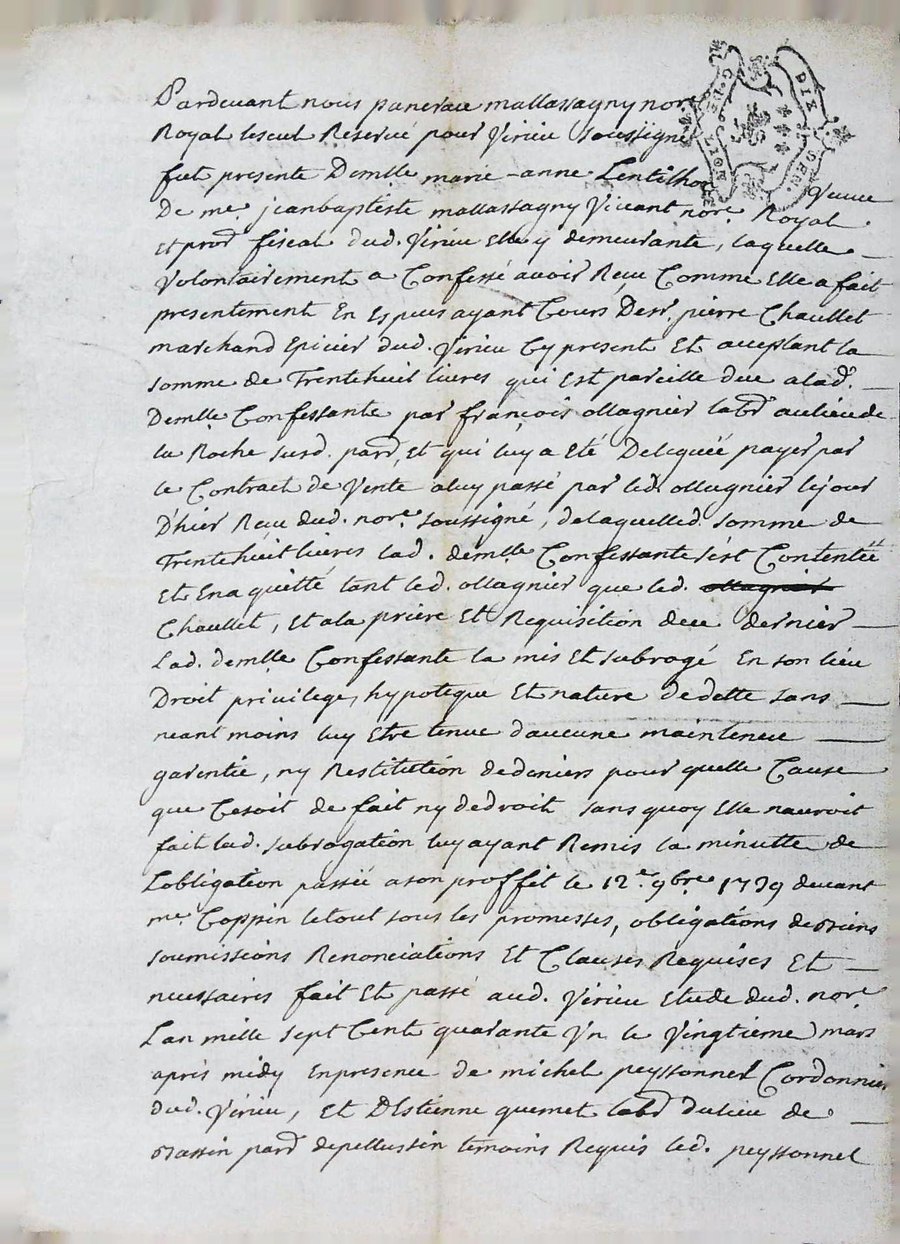 Pardevant nous panerace mallassagny nore
Royal lescul Reservé pour Virieu soussigné
fut presente Demlle marie-anne Lentilhon Veuve
De me. jeanbaptiste mallassagny Vivant nore. Royal
et prod fiscal dud. Virieu Elle y demeurante, laquelle
Volontairement a Confessé avoir Reçu Comme Elle a fait
presentement En Espuis ayant Cours De sr. pierre Chaullet
marchand Epicier dud. Virieu Cy present Et aceptant la
somme de Trentehuit livres qui Est pareille due alad.
Demlle Confessante par françois ollagnier labr aulieu de
la Roche surd. pard, Et qui luy a Eté Deleguéé payer par
le Contract de Vente aluy passé par led. ollagnier lejour
D'hier Reçu dud. nore. soussigné, delaquelled. somme de
Trentehuit livres lad. demlle Confessante s'est Contentéé
Et Ena quitté tant led. ollagnier que led. ollagnier
Chaullet, Et ala prière Et Requisition dece dernier
Lad. demlle Confessante la mis Et subrogé En son lieu
Droit privilege, hypoteque Et nature dedette sans
neant moins luy Etre tenue d'aucune maintenue
garentie, ny Restitution dedeniers pour quelle Cause
que Cesoit de fait ny dedroit sans quoy Elle n'auroit
fait lad. subrogation luy ayant Remis la minutte de
Lobligation passée ason proffit le 12.e 9bre 1739 devant
me Coppin letout sous les promesses, obligations debiens
soumissions Renonciations Et Clauses Requises Et
necessaires fait Et passé aud. Virieu Etude dud. nore
Lan mille sept Cent quarante Vn le Vingtieme mars
aprés midy Enpresence de michel peyssonnel Cordonnier
dud. Virieu, Et D'Estienne quemet labr dulieu de
Bassin pard depellussin temoins Requis led. peyssonnel